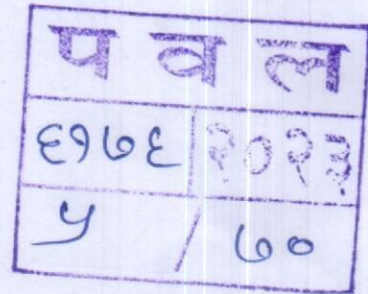 प व ल
६१७६ २०२३
५ / ७०